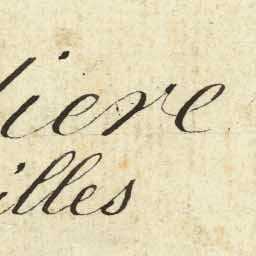 liere
illes